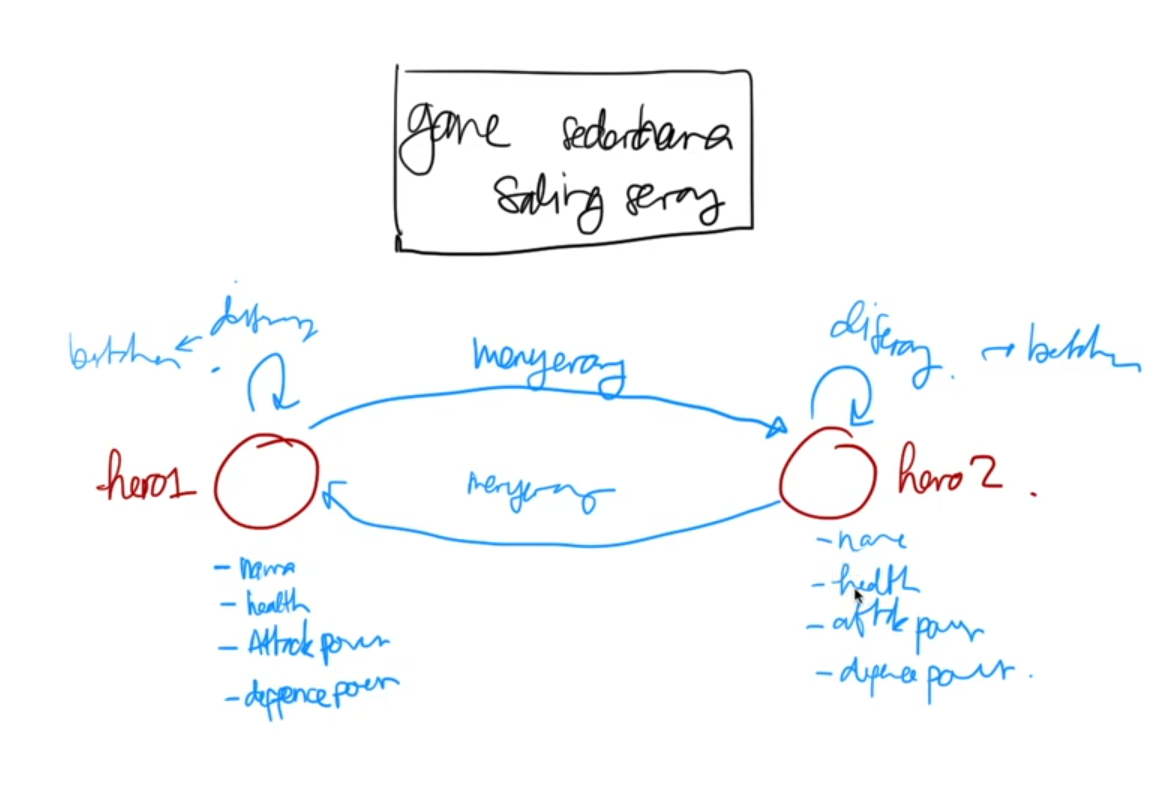 game sederhana
saling serang
diserang
menyerang
diserang
hero1
menyerang
hero2.
- nama
- health
- Attack power
- deffence power
- name
- health
- attack power
- defence power.